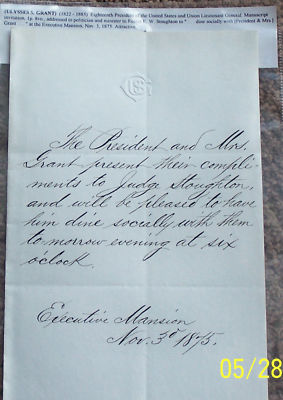 (ULYSSES S. GRANT) (1822 - 1885) Eighteenth President of the United States and Union Lieutenant General. Manuscript
invitation, 1p. 8vo., addressed to politician and minister to Russia E. W. Stoughton to " dine socially with [President & Mrs.]
Grant " at the Executive Mansion, Nov. 3, 1875. Attractive
The President and Mrs.
Grant present their compli-
ments to Judge Stoughton,
and will be pleased to have
him dine socially with them
to-morrow evening at six
o'clock.
Executive Mansion
Nov. 3d 1875.
05/28